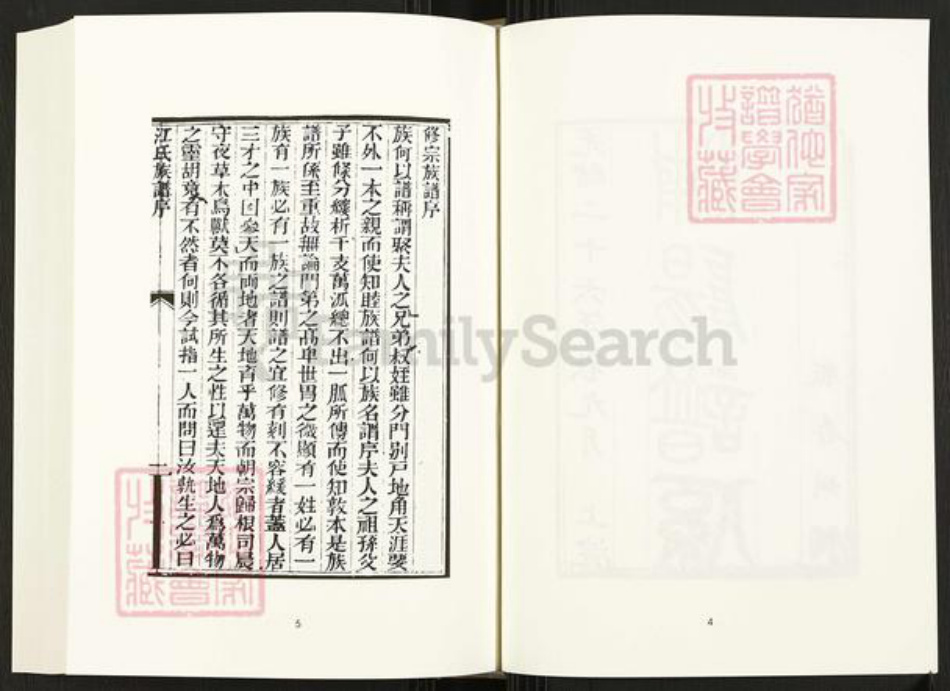 修宗族譜序
族何以譜稱謂聚夫人之兄弟叔姪雖分門別戶地角天涯要
不外一本之親而使知睦族譜何以族名謂序夫人之祖孫父
子雖條分縷析千支萬派總不出一脈所傳而使知敦本是族
譜所係至重故無論門第之高卑世冑之微顯有一姓必有一
族有一族必有一族之譜則譜之宜修有刻不容緩者蓋人居
三才之中回參天而兩地者天地育乎萬物而朝宗歸根司晨
守夜草木鳥獸莫不各循其所生之性以還夫天地人為萬物
之靈胡竟有不然者何則今試指一人而問曰汝孰生之必曰
江氏族譜序
一
5
4
猶他家譜學會收藏
猶他家譜學會收藏
FamilySearch